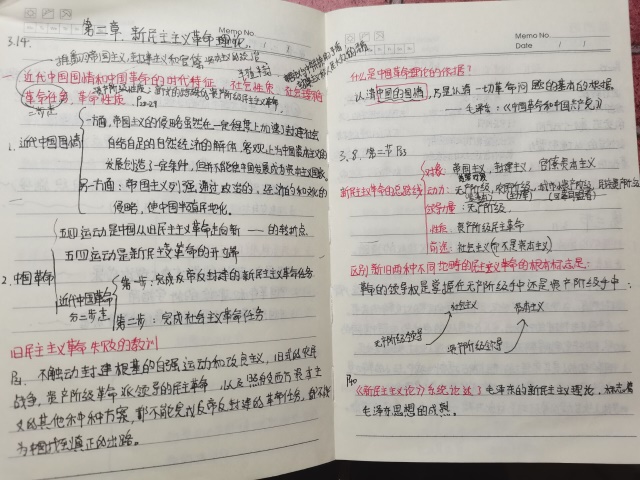 第二章、新民主主义革命理论
Memo No.
3.14.
推翻帝国主义、封建主义和官僚资本主义的统治
一 近代中国国情和中国革命的时代特征 社会性质、社会主要矛盾
革命任务、革命性质
P22-29
1. 近代中国国情
一方面,帝国主义的侵略虽然在一定程度上加速了封建社会
自给自足的自然经济的解体,客观上为中国资本主义的
发展创造了一定条件,但并不能使中国发展成为资本主义国家。
另一方面:帝国主义列强通过政治的、经济的和文化的
侵略,使中国半殖民地化。
2. 中国革命
五四运动是中国从旧民主主义革命走向新——的转折点。
五四运动是新民主主义革命的开端
近代中国革命分二步走
第一步:完成反帝反封建的新民主主义革命任务
第二步:完成社会主义革命任务
旧民主主义革命失败的教训
不触动封建根基的自强运动和改良主义,旧式的农民
战争,资产阶级革命派领导的民主革命,以及照搬西方资本主
义的其他种种方案,都不能完成反帝反封建的革命任务,都不能
为中国找到真正的出路。
Memo No.
Date / /
什么是中国革命理论的依据?
认清中国的国情,乃是认清一切革命问题的基本的根据
——毛泽东:《中国革命和中国共产党》
3.8. 第二节
新民主主义革命的总路线
对象:帝国主义,封建主义,官僚资本主义
动力:无产阶级,农民阶级,城市小资产阶级,民族资产阶级
领导力量:无产阶级,
性质:资产阶级民主革命
前途:社会主义(不是资本主义)
区别新旧两种不同范畴的民主主义革命的根本标志是:
革命的领导权是掌握在无产阶级手中还是资产阶级手中:
社会主义 资本主义
无产阶级领导 资产阶级领导
《新民主主义论》系统论述了毛泽东的新民主主义理论,标志着
毛泽东思想的成熟。